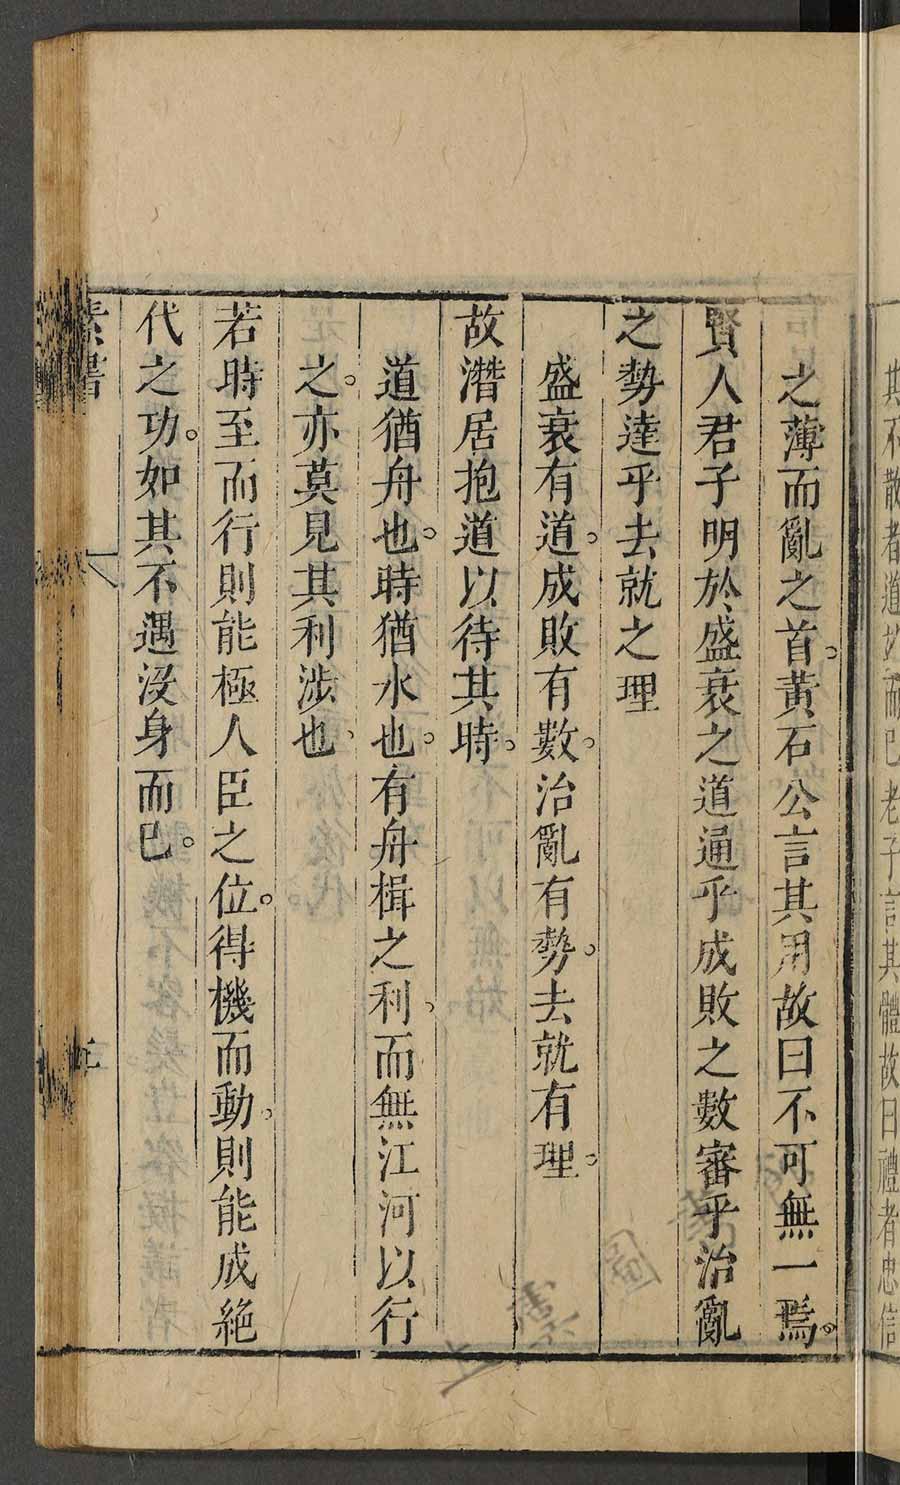 其不散者道也而已老子言其體故曰禮者忠信
之薄而亂之首。黃石公言其用故曰不可無一焉。
賢人君子明於盛衰之道通乎成敗之數審乎治亂
之勢達乎去就之理
盛衰有道。成敗有數。治亂有勢。去就有理。
故潛居抱道以待其時。
道猶舟也。時猶水也。有舟楫之利、而無江河以行
之。亦莫見其利涉也、
若時至而行則能極人臣之位。得機而動、則能成絶
代之功。如其不遇沒身而已。
素書
五